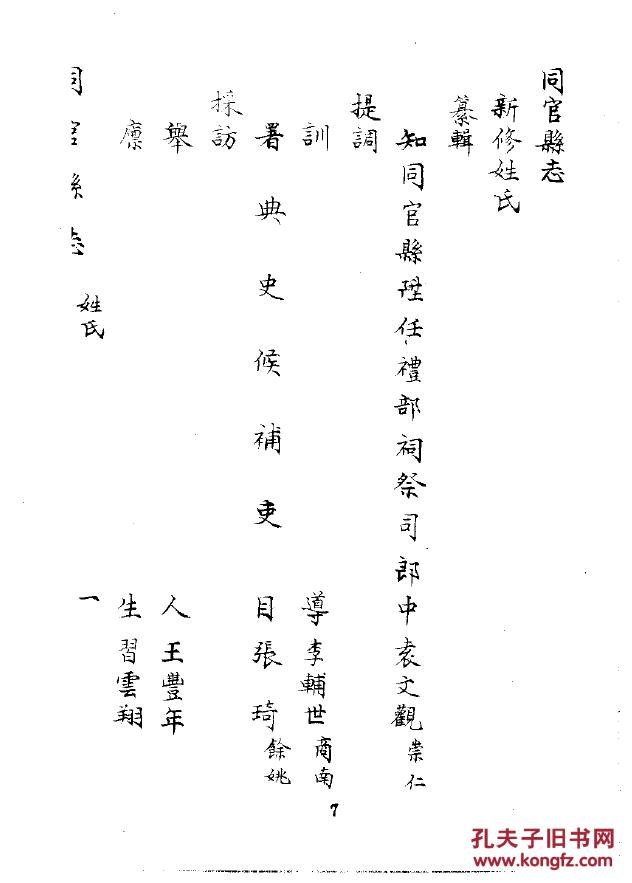 同官縣志
新修姓氏
纂輯
知同官縣陞任禮部祠祭司郎中袁文觀 崇仁
提調
訓導李輔世 商南
署典史候補吏目張琦 餘姚
採訪
舉人王豐年
廩生習雲翔
同官縣志 姓氏 一
7
孔夫子旧书网
www.kongfz.com